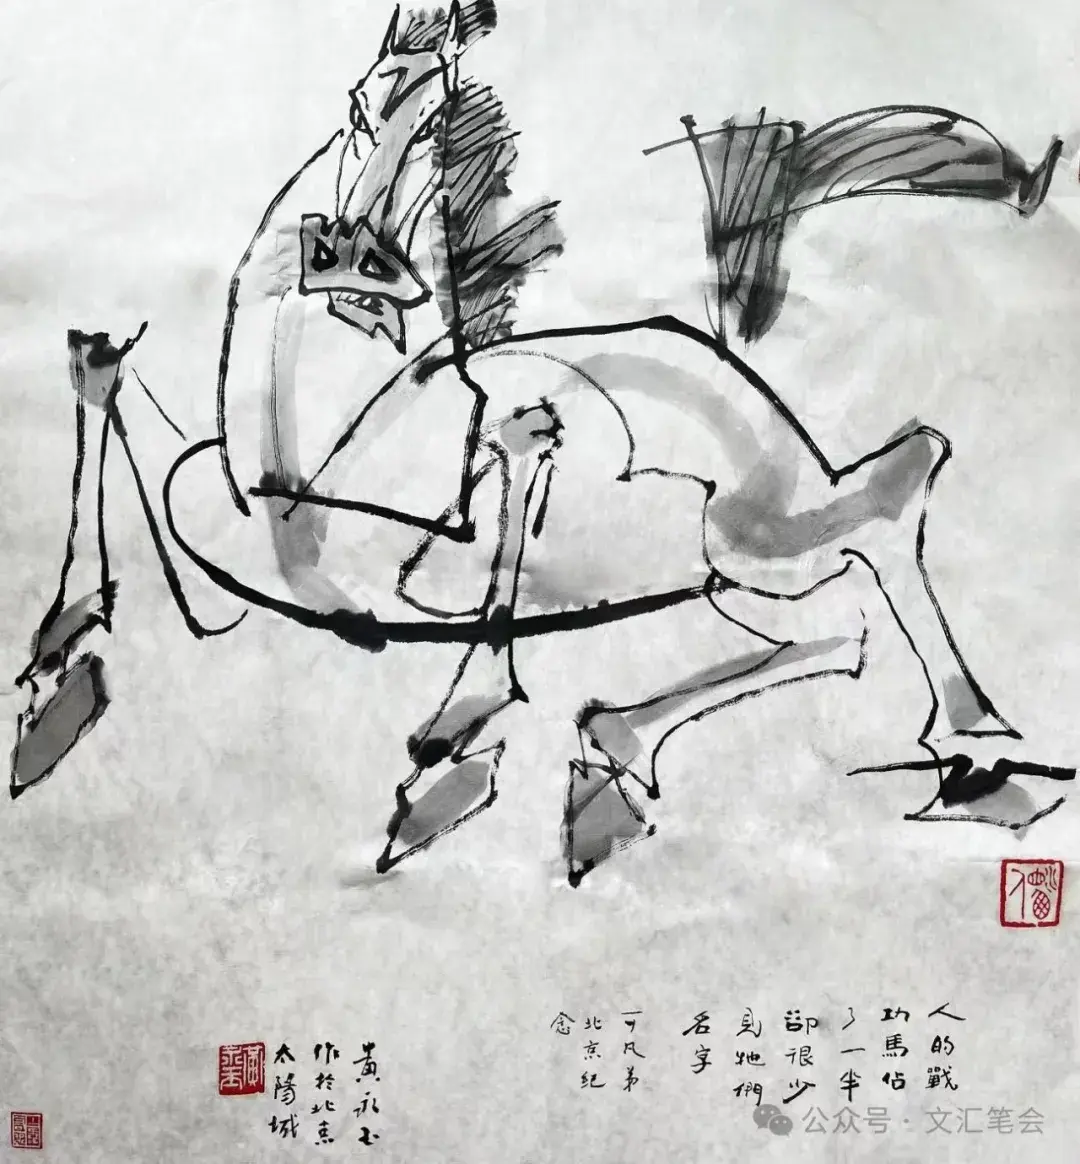 人的戰
功馬佔
了一半
卻很少
見牠們
名字
可凡弟
北京纪
念
黃永玉
作於北京
太陽城
黃永玉
公众号 · 文汇笔会